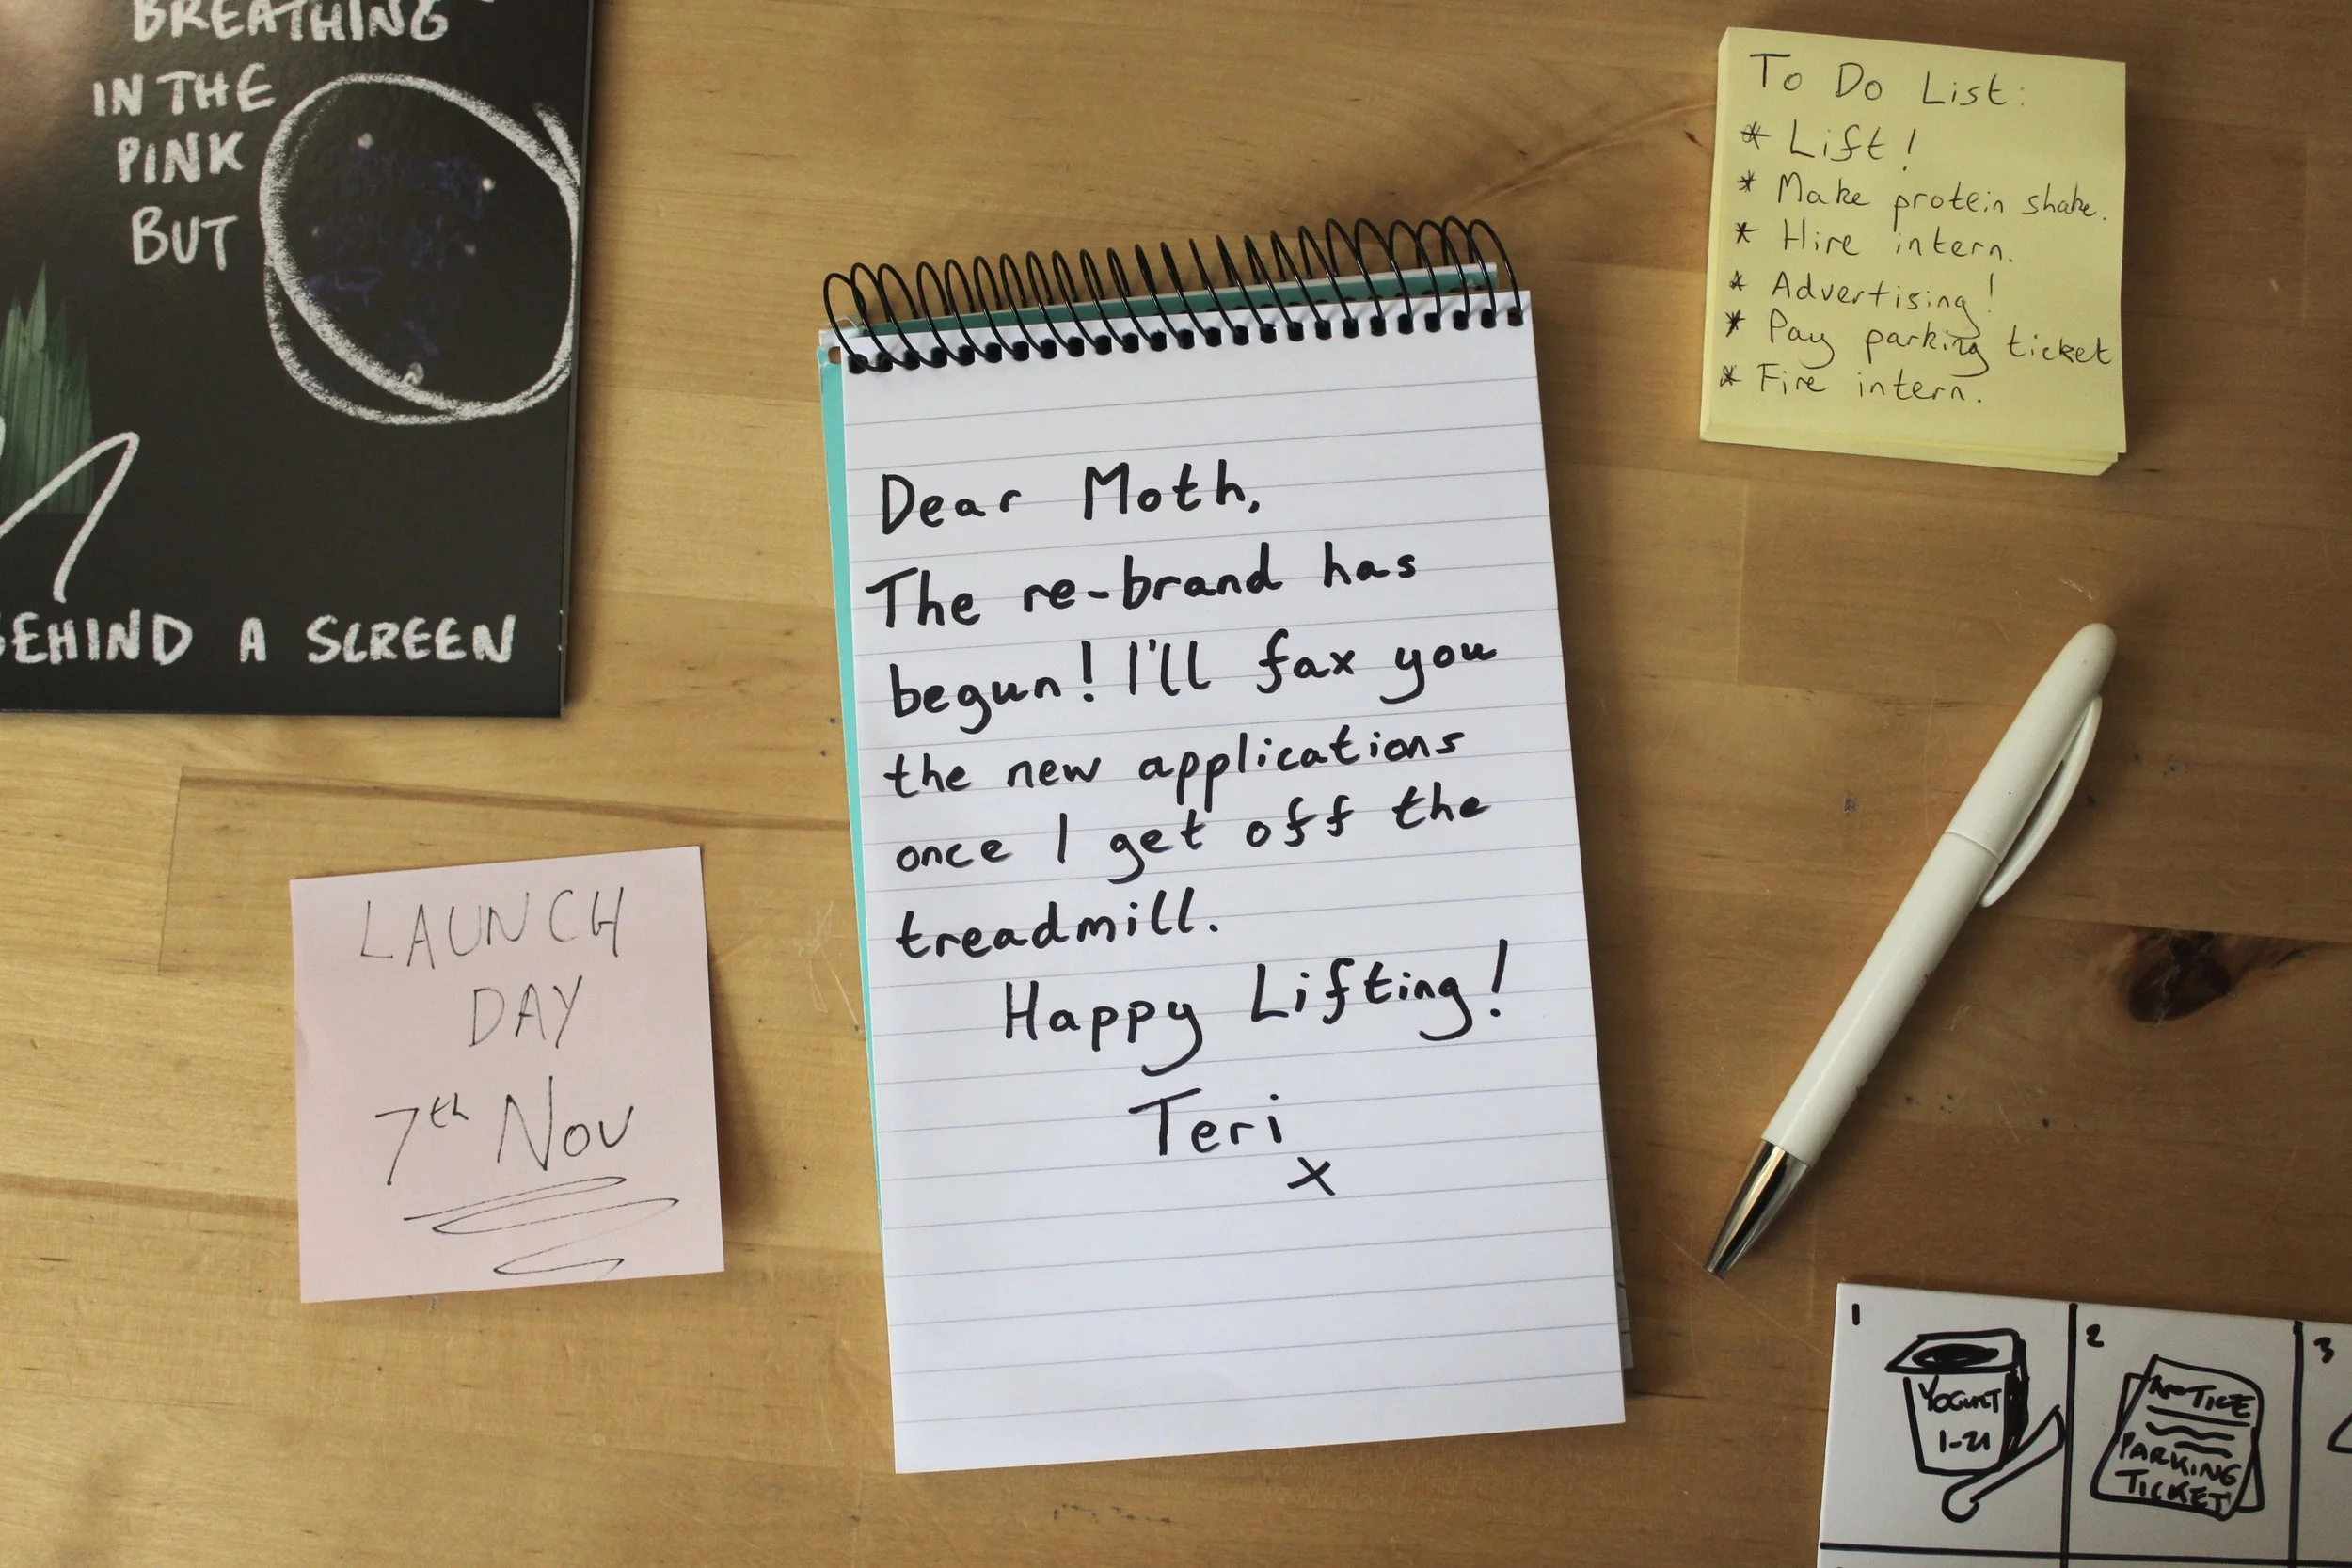 BREATHING
IN THE
PINK
BUT
BEHIND A SCREEN
To Do List:
* Lift!
* Make protein shake.
* Hire intern.
* Advertising!
* Pay parking ticket
* Fire intern.
Dear Moth,
The re-brand has
begun! I'll fax you
the new applications
once I get off the
treadmill.
Happy Lifting!
Teri
x
LAUNCH
DAY
7th Nov
1
YOGURT
1-21
2
NOTICE
PARKING
TICKET
3